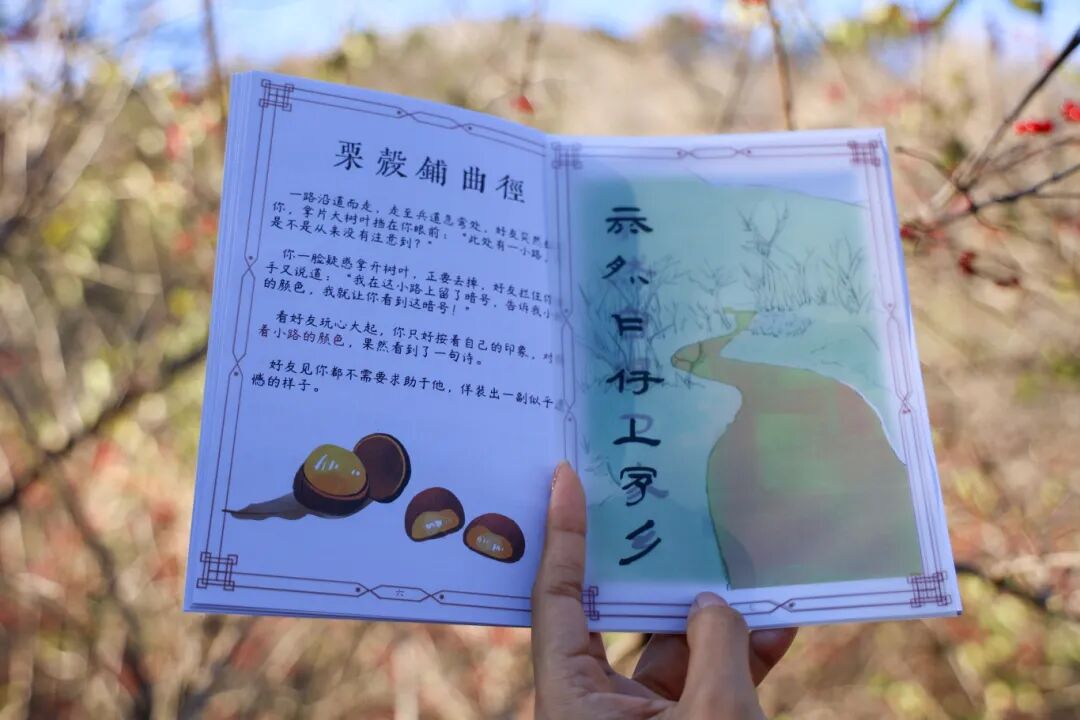 栗殼鋪曲徑
一路沿道而走，走至兵道急弯处，好友突然
你，拿片大树叶挡在你眼前：“此处有一小路，
是不是从来没有注意到？”
你一脸疑惑拿开树叶，正要去掉，好友拦住你
手又说道：“我在这小路上留了暗号，告诉我小
的颜色，我就让你看到这暗号！”
看好友玩心大起，你只好按着自己的印象，对
着小路的颜色，果然看到了一句诗。
好友见你都不需要求助于他，佯装出一副似乎
憾的样子。
六
然日仔卫家乡